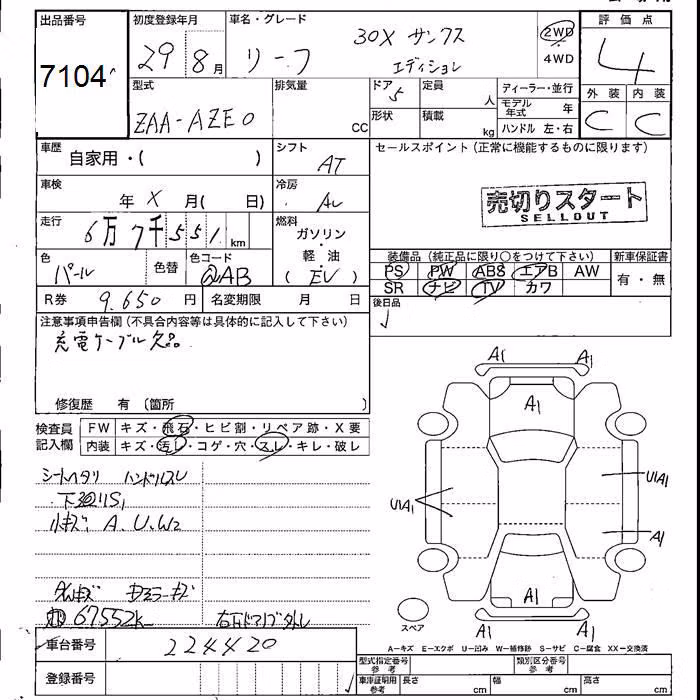 出品番号 初度登録年月 車名・グレード 評価点
7104 29 8月 リーフ 30X サンクス エディション 2WD・4WD 4
型式 排気量 ドア 定員 ディーラー・並行 外装 内装
ZAA-AZE0 CC 5 人 モデル年式 年 C C
形状 積載 kg ハンドル 左・右
車歴 自家用・( ) シフト AT セールスポイント(正常に機能するものに限ります)
車検 年 X 月( 日) 冷房
売切りスタート
SELLOUT
走行 6万7千551km 燃料 ガソリン・軽油(EV)
色 パール 色替 色コード QAB
装備品(純正品に限り○をつけて下さい) 新車保証書
PS PW ABS エアB AW 有・無
SR ナビ TV カワ
R券 9.650円 名変期限 月 日 後日品
注意事項申告欄(不具合内容等は具体的に記入して下さい)
充電ケーブル欠品
修復歴 有 (箇所 )
検査員記入欄 FW キズ・飛石・ヒビ割・リペア跡・X要
内装 キズ・汚し・コゲ・穴・スレ・キレ・破レ
シートヘタリ ハンドルスレ
下廻りS1
小キズ A.U.W2
67552k
車台番号 224420
登録番号
A1 A1
A1
U1A1 U1A1
A1
A1
A1 A1
スペア
A−キズ E−エクボ U−凹み W−補修跡 S−サビ C−腐食 XX−交換済
型式指定番号 参考 類別区分番号 参考
車庫証明用 参考 長さ cm 幅 cm 高さ cm